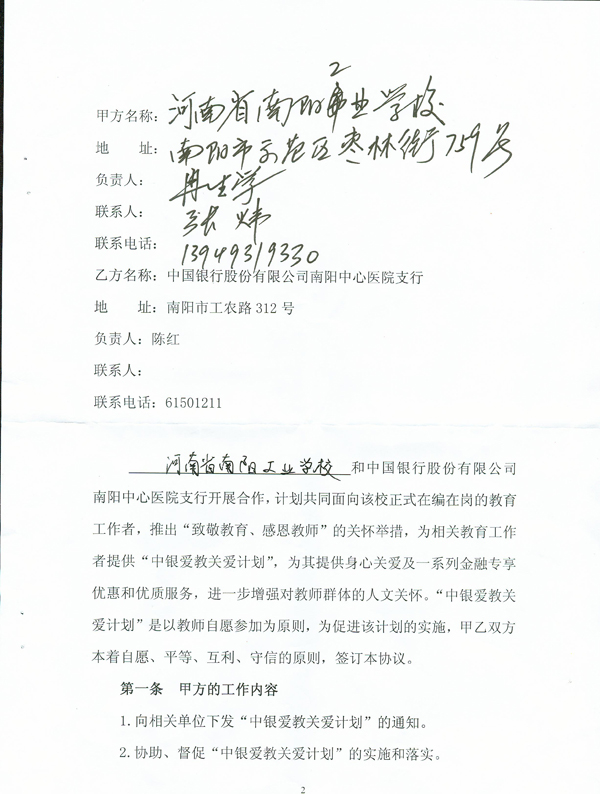 甲方名称：河南省南阳工业学校
地　　址：南阳市示范区枣林街759号
负责人：冉生学
联系人：张炜
联系电话：13949319330
乙方名称：中国银行股份有限公司南阳中心医院支行
地　　址：南阳市工农路312号
负责人：陈红
联系人：
联系电话：61501211
河南省南阳工业学校 和中国银行股份有限公司
南阳中心医院支行开展合作，计划共同面向该校正式在编在岗的教育
工作者，推出“致敬教育、感恩教师”的关怀举措，为相关教育工作
者提供“中银爱教关爱计划”，为其提供身心关爱及一系列金融专享
优惠和优质服务，进一步增强对教师群体的人文关怀。“中银爱教关
爱计划”是以教师自愿参加为原则，为促进该计划的实施，甲乙双方
本着自愿、平等、互利、守信的原则，签订本协议。
第一条　甲方的工作内容
1.向相关单位下发“中银爱教关爱计划”的通知。
2.协助、督促“中银爱教关爱计划”的实施和落实。
2